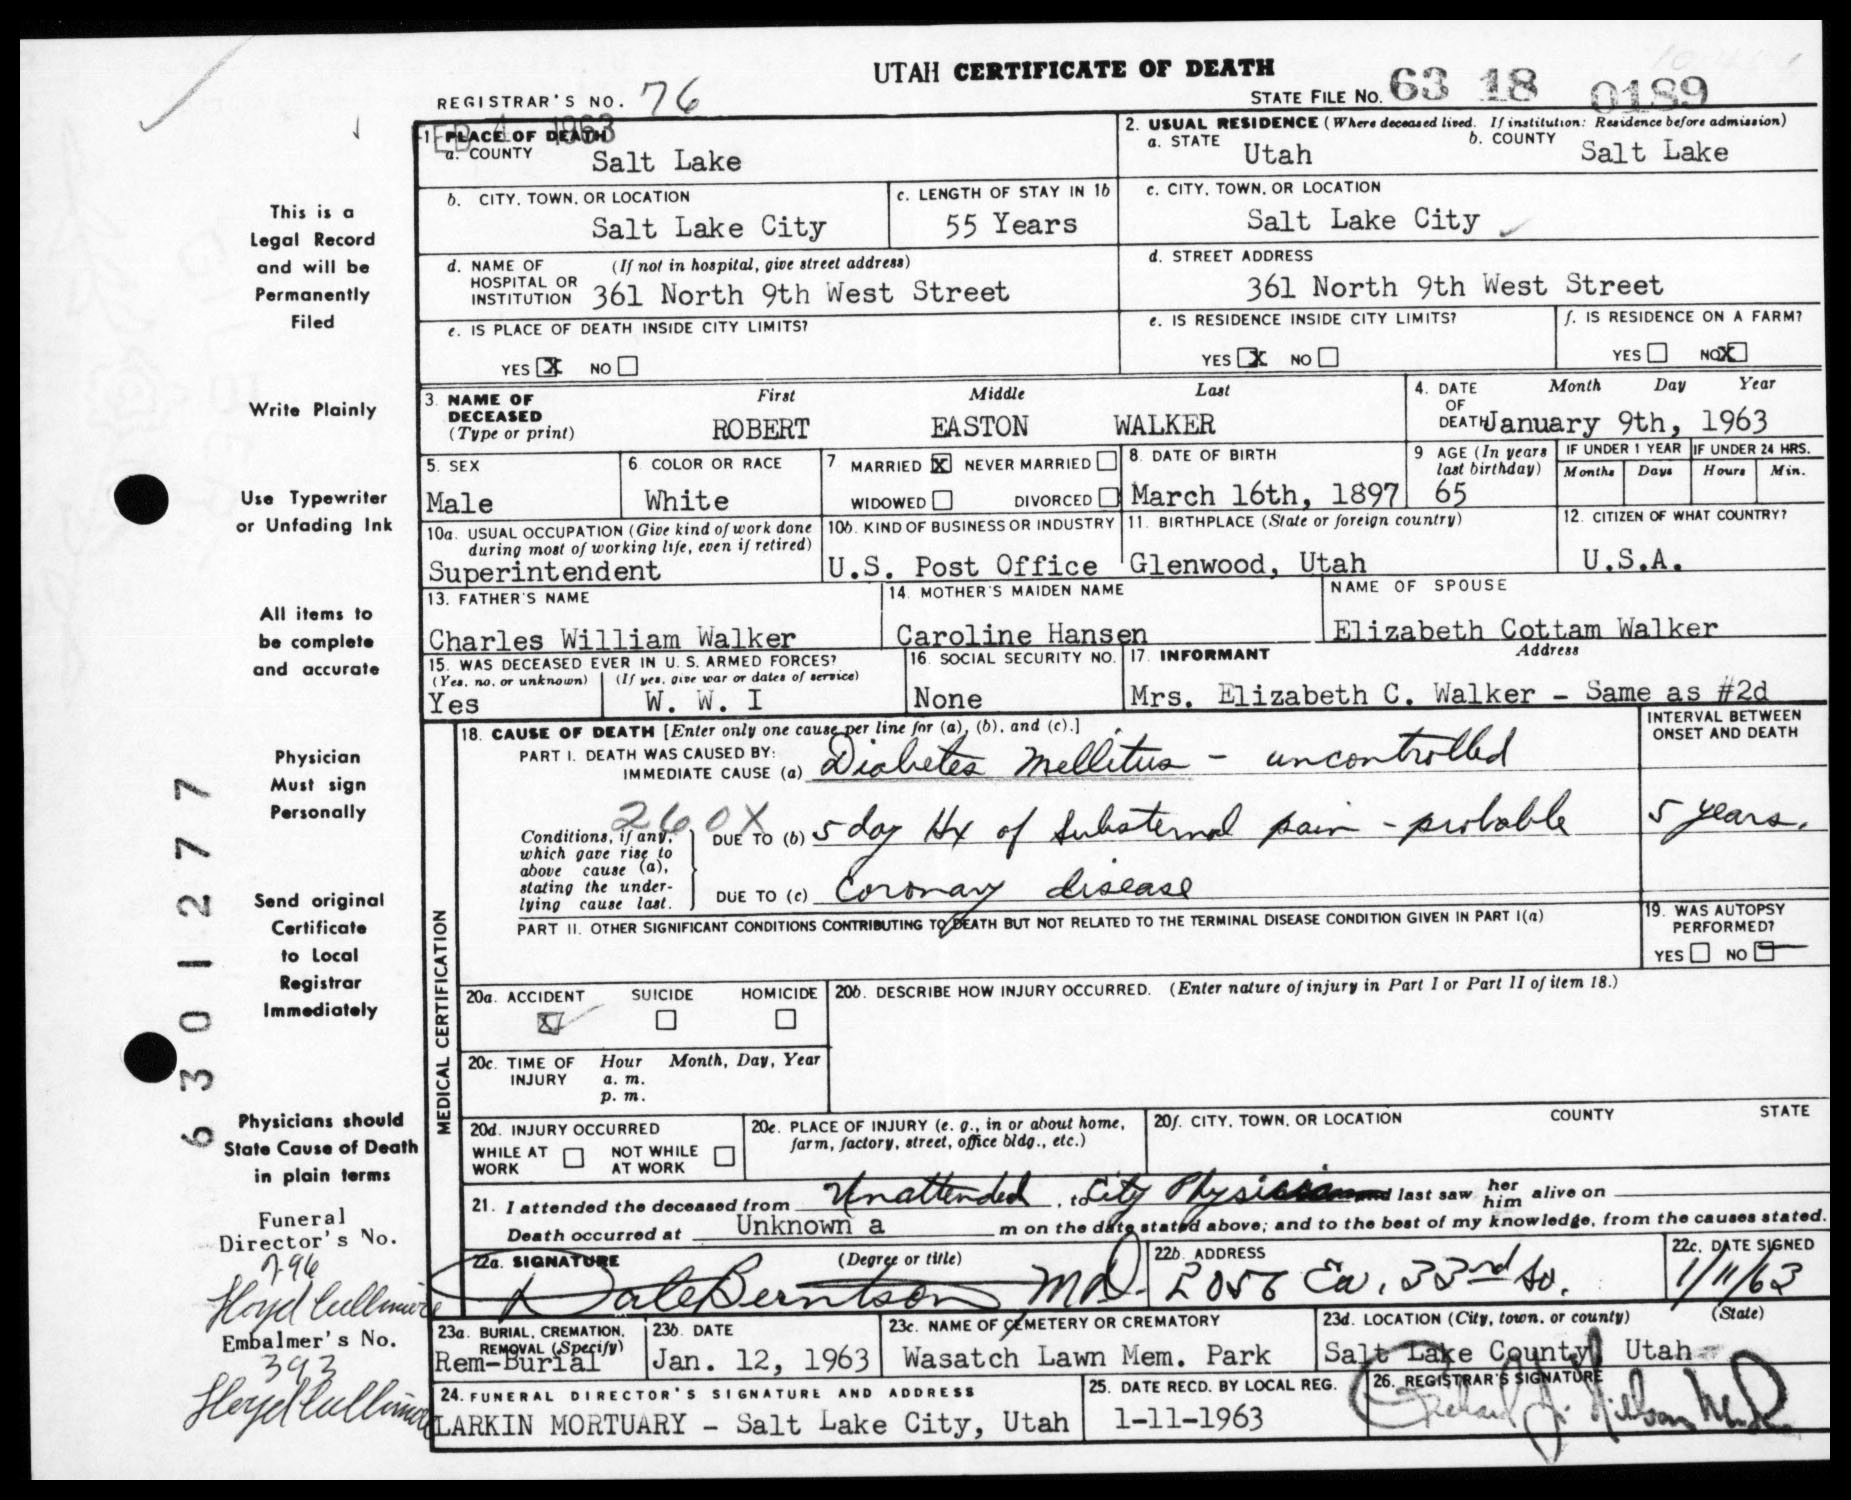 UTAH CERTIFICATE OF DEATH
REGISTRAR'S NO. 76
STATE FILE NO. 63 18 0189
FEB 4 1963
1. PLACE OF DEATH
a. COUNTY Salt Lake
2. USUAL RESIDENCE (Where deceased lived. If institution: Residence before admission)
a. STATE Utah b. COUNTY Salt Lake
b. CITY, TOWN, OR LOCATION Salt Lake City
c. LENGTH OF STAY IN 1b 55 Years
c. CITY, TOWN, OR LOCATION Salt Lake City
d. NAME OF HOSPITAL OR INSTITUTION (If not in hospital, give street address) 361 North 9th West Street
d. STREET ADDRESS 361 North 9th West Street
e. IS PLACE OF DEATH INSIDE CITY LIMITS?
YES X NO
e. IS RESIDENCE INSIDE CITY LIMITS?
YES X NO
f. IS RESIDENCE ON A FARM?
YES NO X
3. NAME OF DECEASED (Type or print)
First Middle Last
ROBERT EASTON WALKER
4. DATE OF DEATH Month Day Year
January 9th, 1963
5. SEX Male
6. COLOR OR RACE White
7. MARRIED X NEVER MARRIED
WIDOWED DIVORCED
8. DATE OF BIRTH March 16th, 1897
9 AGE (In years last birthday) 65
IF UNDER 1 YEAR Months Days
IF UNDER 24 HRS. Hours Min.
10a. USUAL OCCUPATION (Give kind of work done during most of working life, even if retired) Superintendent
10b. KIND OF BUSINESS OR INDUSTRY U.S. Post Office
11. BIRTHPLACE (State or foreign country) Glenwood, Utah
12. CITIZEN OF WHAT COUNTRY? U.S.A.
13. FATHER'S NAME Charles William Walker
14. MOTHER'S MAIDEN NAME Caroline Hansen
NAME OF SPOUSE Elizabeth Cottam Walker
15. WAS DECEASED EVER IN U. S. ARMED FORCES?
(Yes, no, or unknown) (If yes, give war or dates of service)
Yes W. W. I
16. SOCIAL SECURITY NO. None
17. INFORMANT Address
Mrs. Elizabeth C. Walker - Same as #2d
MEDICAL CERTIFICATION
18. CAUSE OF DEATH [Enter only one cause per line for (a), (b), and (c).]
INTERVAL BETWEEN ONSET AND DEATH
PART I. DEATH WAS CAUSED BY:
IMMEDIATE CAUSE (a) Diabetes Mellitus - uncontrolled
260X
Conditions, if any, which gave rise to above cause (a), stating the underlying cause last.
DUE TO (b) 5 day Hx of substernal pain - probable
5 years.
DUE TO (c) Coronary disease
PART II. OTHER SIGNIFICANT CONDITIONS CONTRIBUTING TO DEATH BUT NOT RELATED TO THE TERMINAL DISEASE CONDITION GIVEN IN PART I(a)
19. WAS AUTOPSY PERFORMED?
YES NO
20a. ACCIDENT SUICIDE HOMICIDE
20b. DESCRIBE HOW INJURY OCCURRED. (Enter nature of injury in Part I or Part II of item 18.)
20c. TIME OF INJURY Hour Month, Day, Year
a. m.
p. m.
20d. INJURY OCCURRED
WHILE AT WORK NOT WHILE AT WORK
20e. PLACE OF INJURY (e. g., in or about home, farm, factory, street, office bldg., etc.)
20f. CITY, TOWN, OR LOCATION COUNTY STATE
21. I attended the deceased from Unattended, to City Physician and last saw her him alive on
Death occurred at Unknown a m on the date stated above; and to the best of my knowledge, from the causes stated.
22a. SIGNATURE (Degree or title)
Dale Berntson MD.
22b. ADDRESS 2056 Ea. 33rd So.
22c. DATE SIGNED 1/11/63
23a. BURIAL, CREMATION, REMOVAL (Specify) Rem-Burial
23b. DATE Jan. 12, 1963
23c. NAME OF CEMETERY OR CREMATORY Wasatch Lawn Mem. Park
23d. LOCATION (City, town, or county) (State)
Salt Lake County Utah
24. FUNERAL DIRECTOR'S SIGNATURE AND ADDRESS
LARKIN MORTUARY - Salt Lake City, Utah
25. DATE RECD. BY LOCAL REG. 1-11-1963
26. REGISTRAR'S SIGNATURE
This is a
Legal Record
and will be
Permanently
Filed
Write Plainly
Use Typewriter
or Unfading Ink
All items to
be complete
and accurate
Physician
Must sign
Personally
Send original
Certificate
to Local
Registrar
Immediately
Physicians should
State Cause of Death
in plain terms
Funeral
Director's No.
296
Floyd Cullimore
Embalmer's No.
393
Floyd Cullimore
6301277